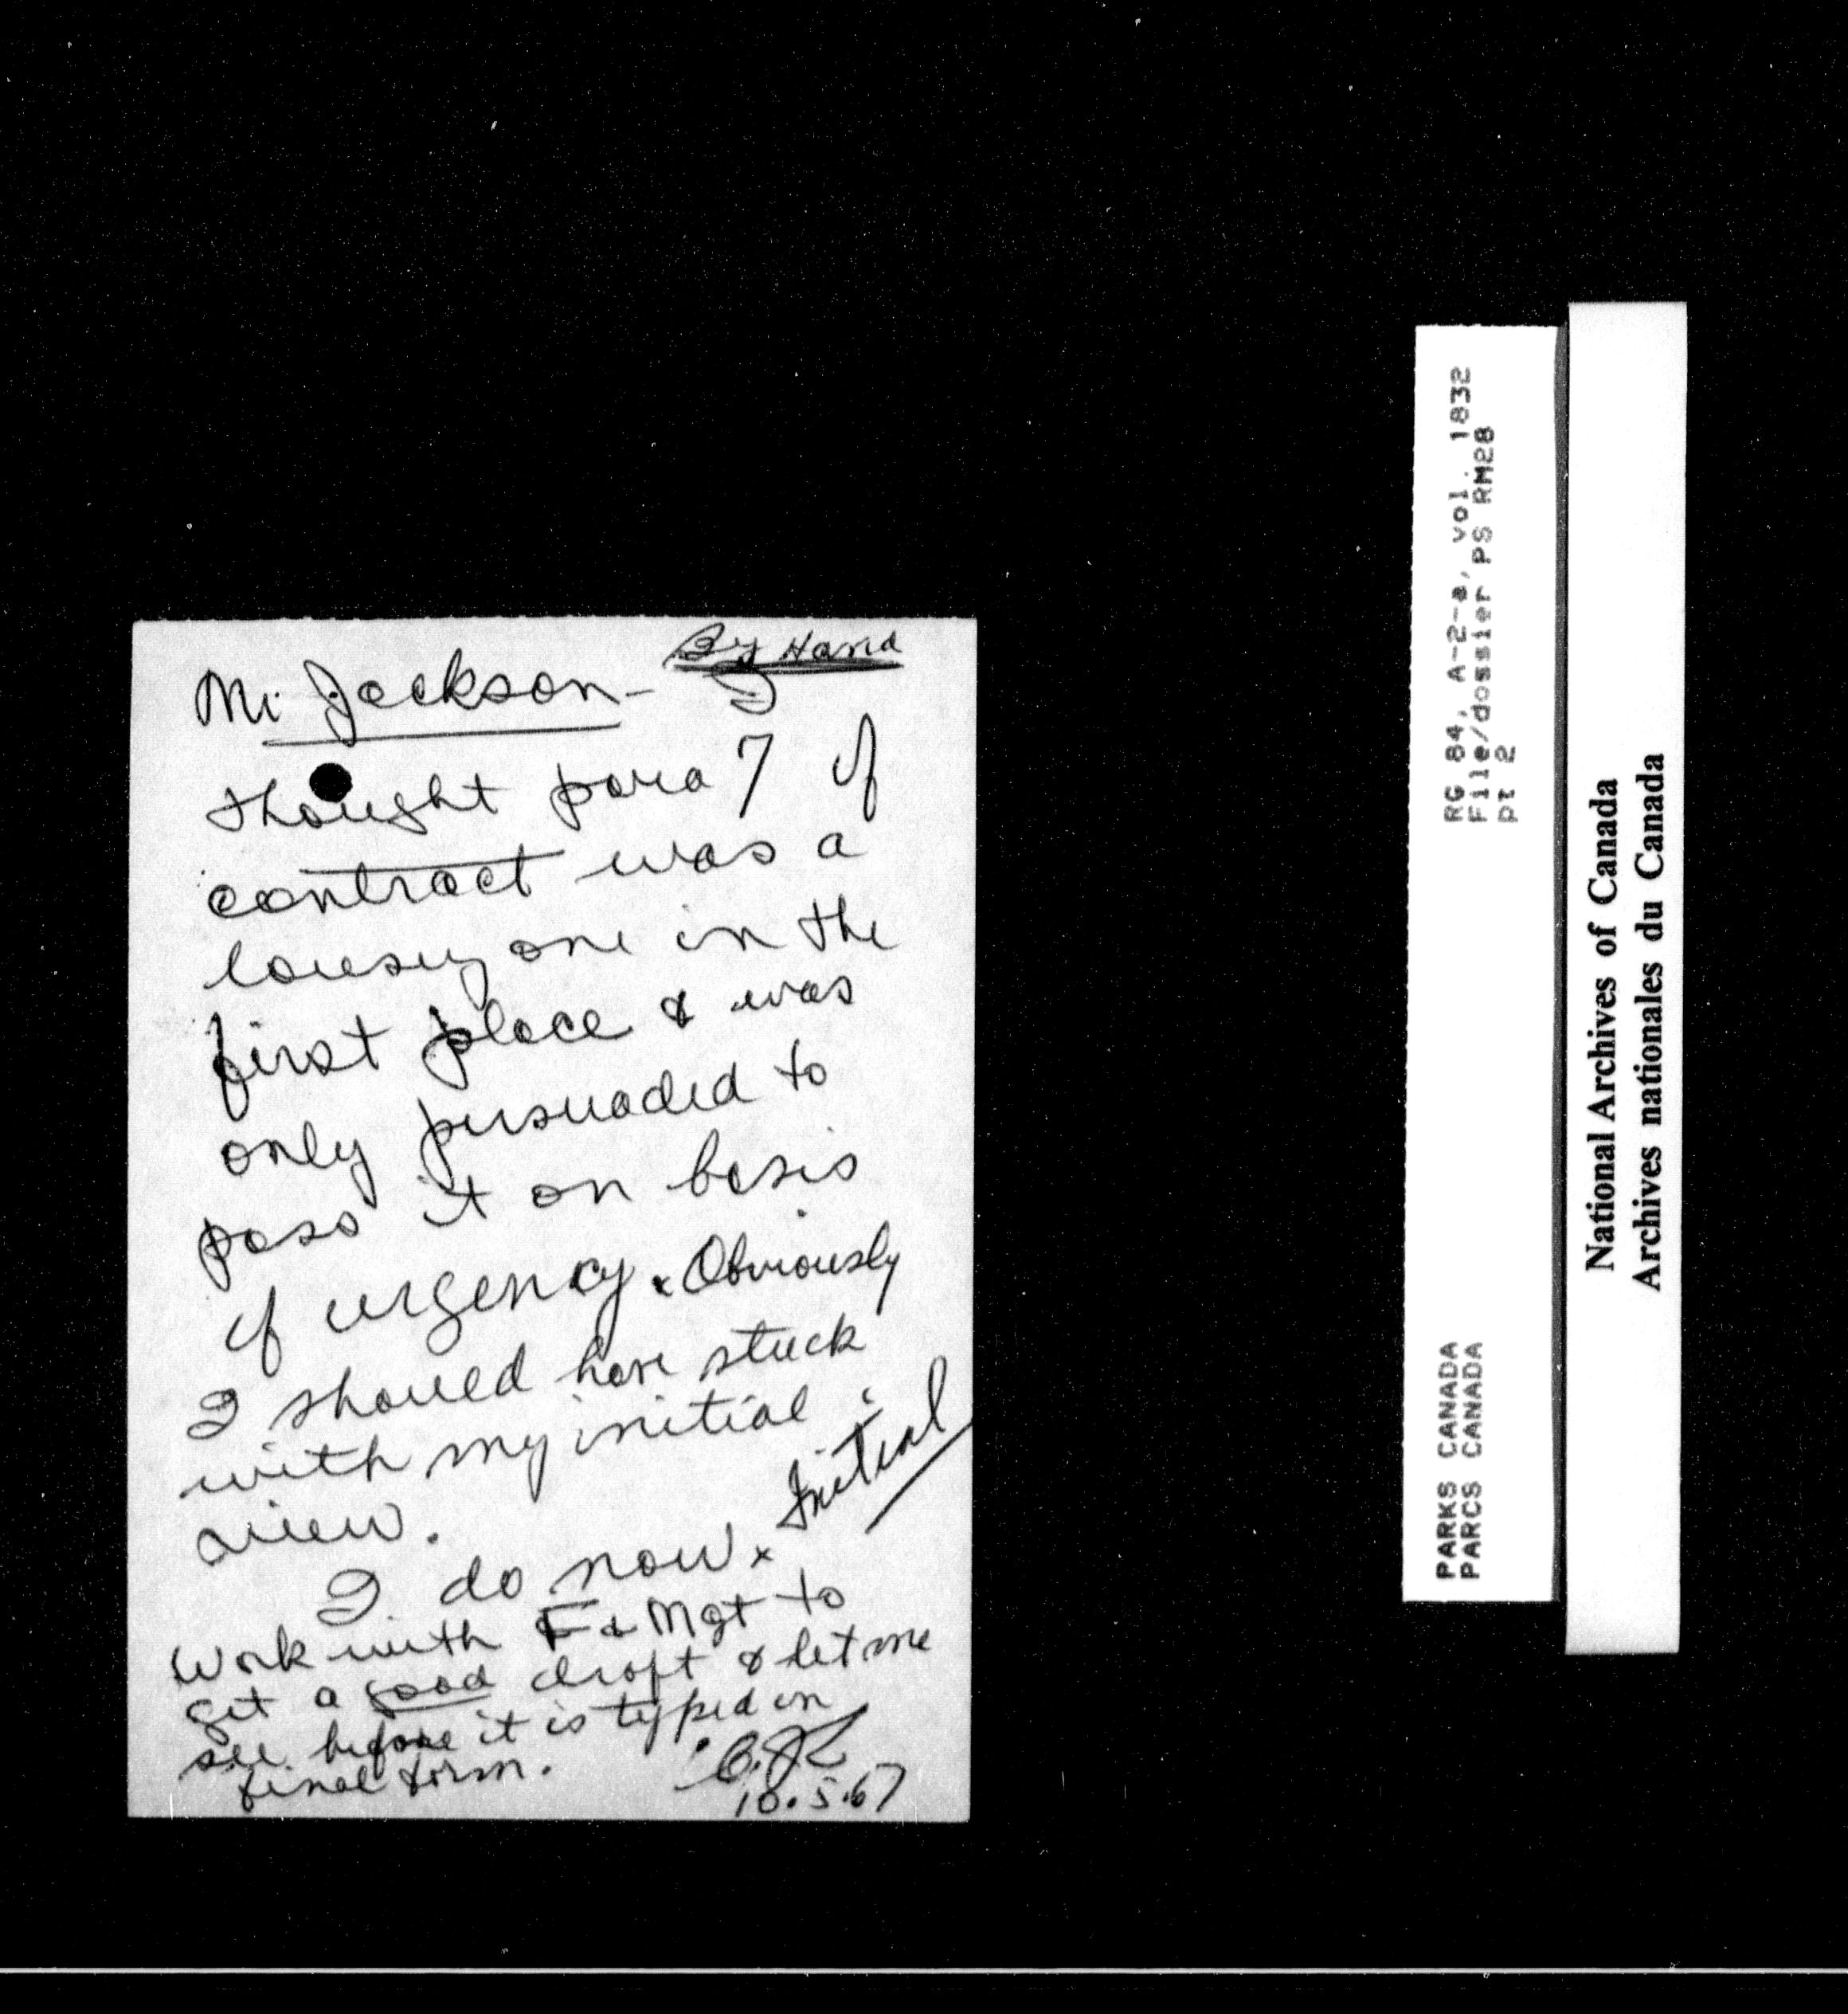 By Hand
Mr Jackson - I
thought para 7 of
contract was a
lousey one in the
first place & was
only persuaded to
pass it on basis
of urgency. Obviously
I should have stuck
with my initial
view.
Initial
I do now.
Work with F & Mgt to
get a good draft & let me
see before it is typed in
final form.
10.5.67
RG 84, A-2-a, vol. 1832
File/dossier PS RM28
pt 2
PARKS CANADA
PARCS CANADA
National Archives of Canada
Archives nationales du Canada